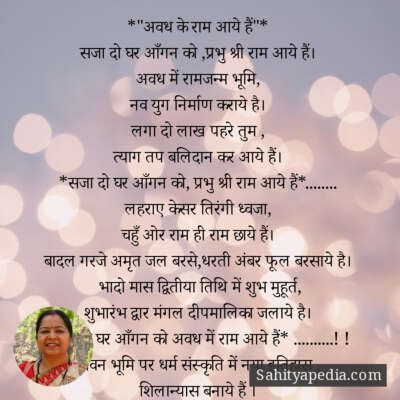 *"अवध के राम आये हैं"*
सजा दो घर आँगन को ,प्रभु श्री राम आये हैं।
अवध में रामजन्म भूमि,
नव युग निर्माण कराये है।
लगा दो लाख पहरे तुम ,
त्याग तप बलिदान कर आये हैं।
*सजा दो घर आँगन को, प्रभु श्री राम आये हैं*........
लहराए केसर तिरंगी ध्वजा,
चहुँ ओर राम ही राम छाये हैं।
बादल गरजे अमृत जल बरसे,धरती अंबर फूल बरसाये है।
भादो मास द्वितीया तिथि में शुभ मुहूर्त,
शुभारंभ द्वार मंगल दीपमालिका जलाये है।
घर आँगन को अवध में राम आये हैं* ..........! !
भूमि पर धर्म संस्कृति में नया
शिलान्यास बनाये हैं ।
Sahityapedia.com